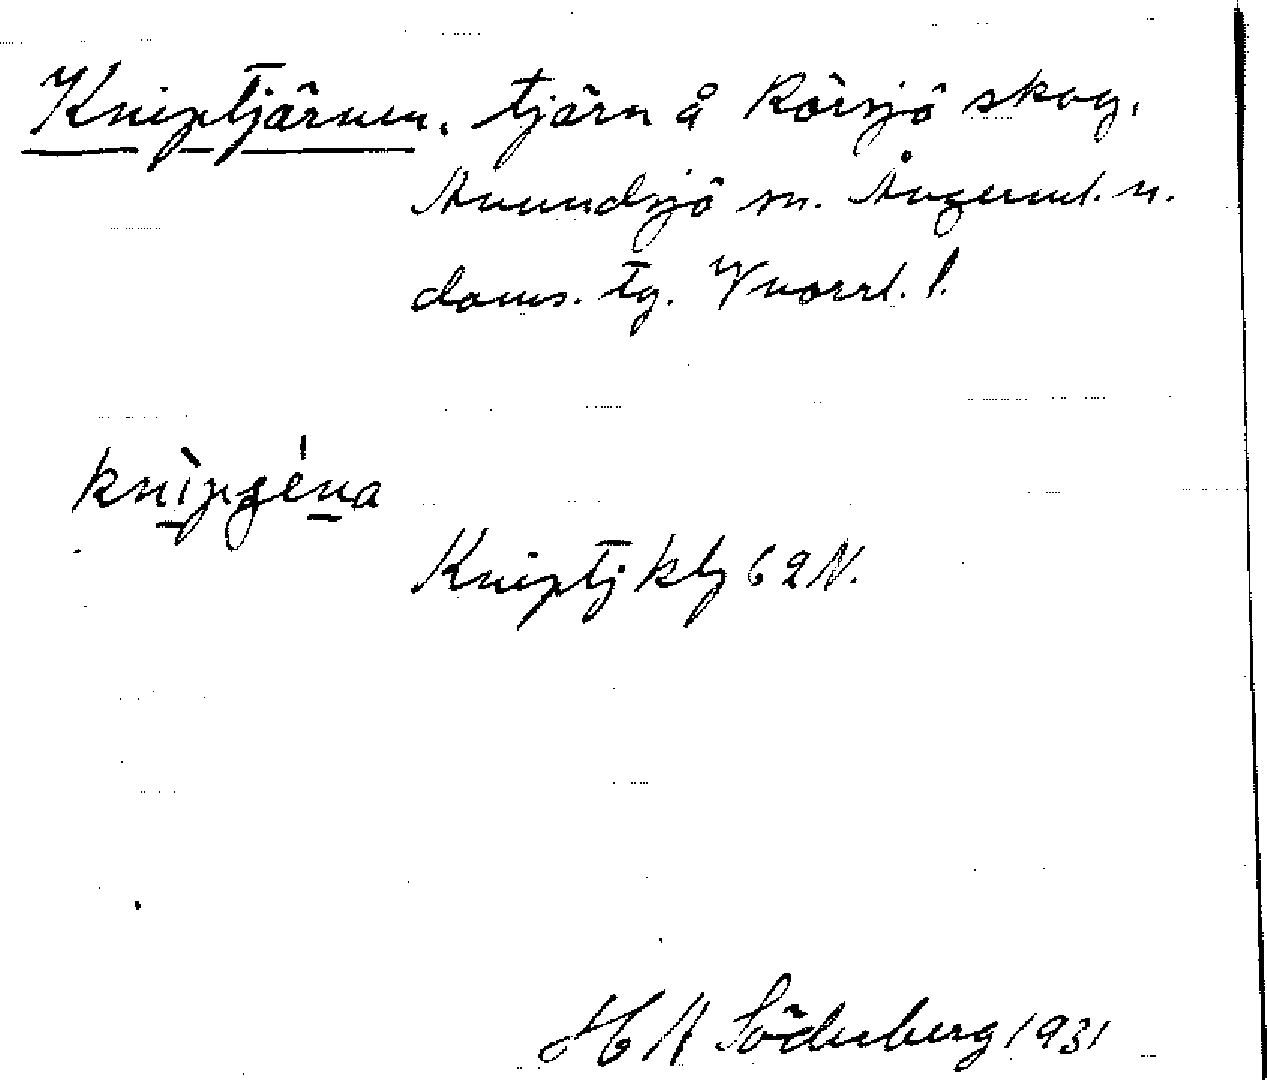 Kniptjärnen. tjärn å Rörsjö skog.
Anundsjö sn. Ångerml. n.
doms. tg. Vnorrl. l.
knìpgéna
Kniptj kbg 62 N.
H A Söderberg 1931